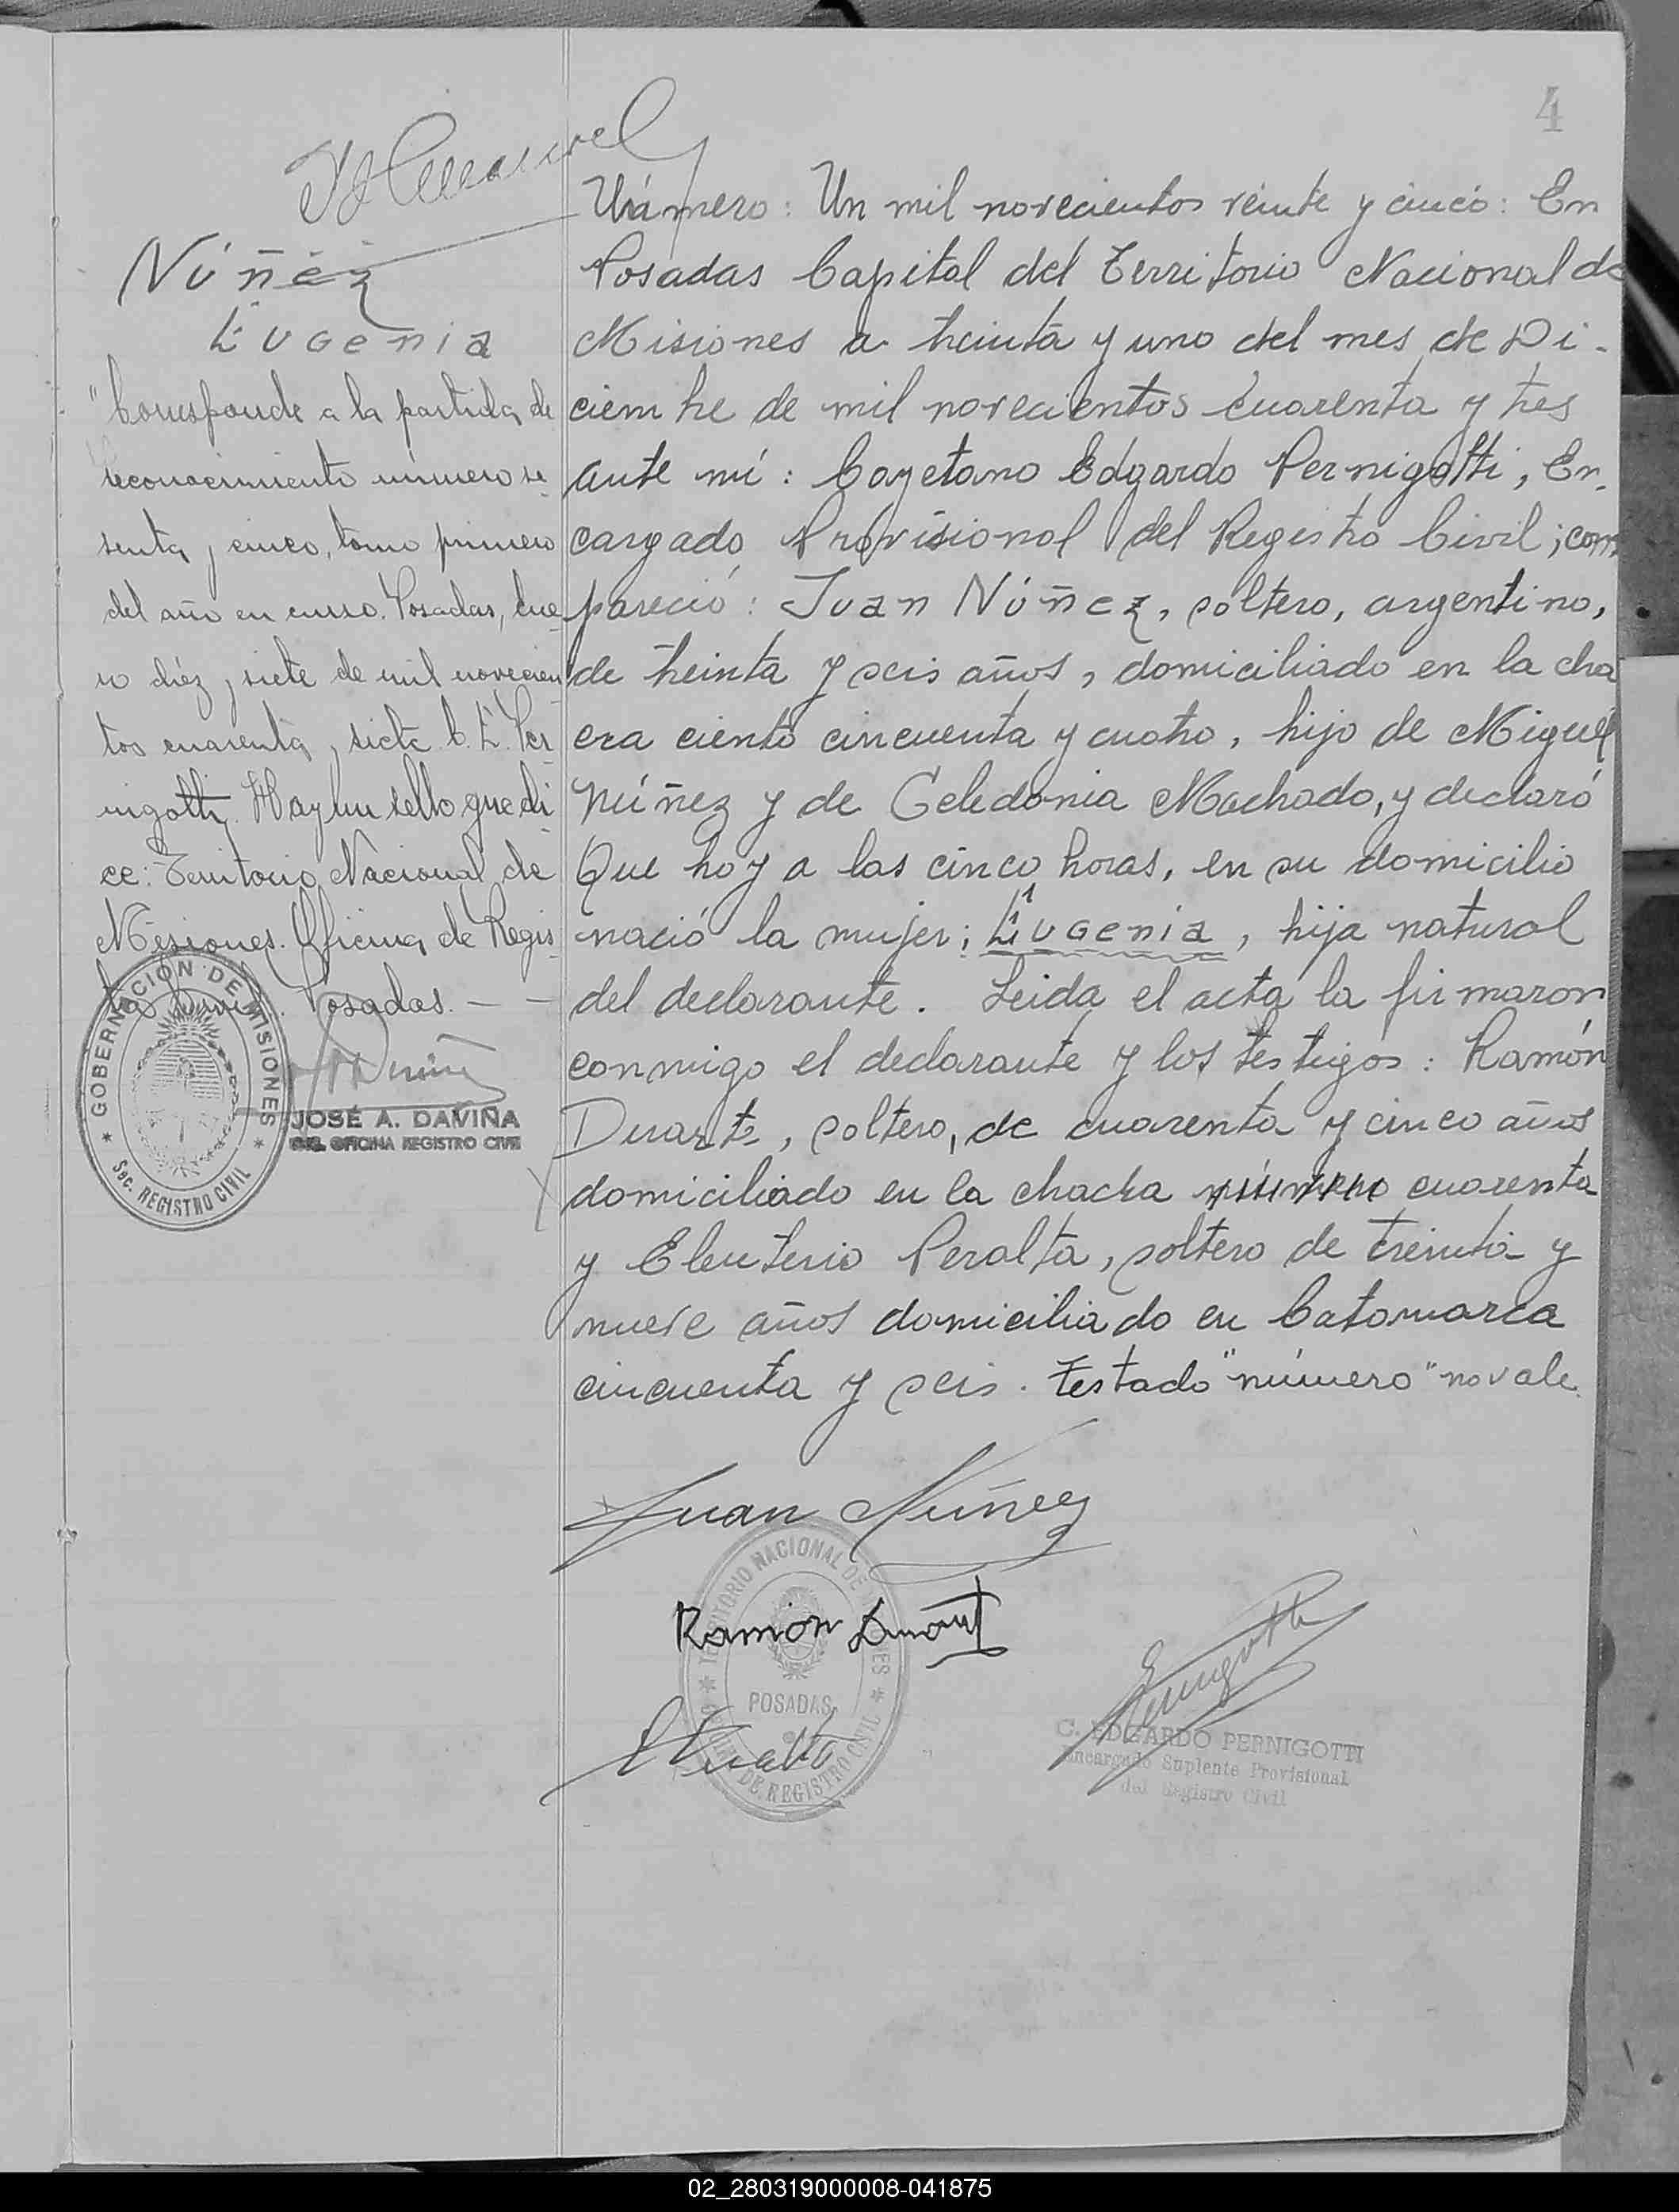 4
Número: Un mil novecientos veinte y cinco: En
Posadas Capital del Territorio Nacional de
Misiones a treinta y uno del mes de Di-
ciembre de mil novecientos cuarenta y tres
ante mí: Cayetano Edgardo Pernigotti, En-
cargado Provisional del Registro Civil; com
pareció: Juan Núñez, soltero, argentino,
de treinta y seis años, domiciliado en la cha
cra ciento cincuenta y cuatro, hijo de Miguel
Núñez y de Celedonia Machado, y declaró
Que hoy a las cinco horas, en su domicilio
nació la mujer; Eugenia, hija natural
del declarante. Leida el acta la firmaron
conmigo el declarante y los testigos: Ramón
Duarte, soltero, de cuarenta y cinco años
domiciliado en la chacra número cuarenta
y Eleuterio Peralta, soltero de treinta y
nueve años domiciliado en Catamarca
cincuenta y seis. Testado "número" no vale.
Juan Núñez
Ramón Duart
TERRITORIO NACIONAL DE
POSADAS
DE REGISTRO CIVIL
Pernigotti
C. EDGARDO PERNIGOTTI
Encargado Suplente Provisional
del Registro Civil
Núñez
Eugenia
"Corresponde a la partida de
reconocimiento número se-
senta y cinco, tomo primero
del año en curso. Posadas, Ene-
ro diéz y siete de mil novecien
tos cuarenta y siete C. E. Per-
nigotti. Hay un sello que di-
ce: Territorio Nacional de
Misiones. Oficina de Regis-
tro Civil. Posadas. - -
GOBERNACIÓN DE MISIONES
Sec. REGISTRO CIVIL
JOSÉ A. DAVIÑA
ENC. OFICINA REGISTRO CIVIL
02_280319000008-041875